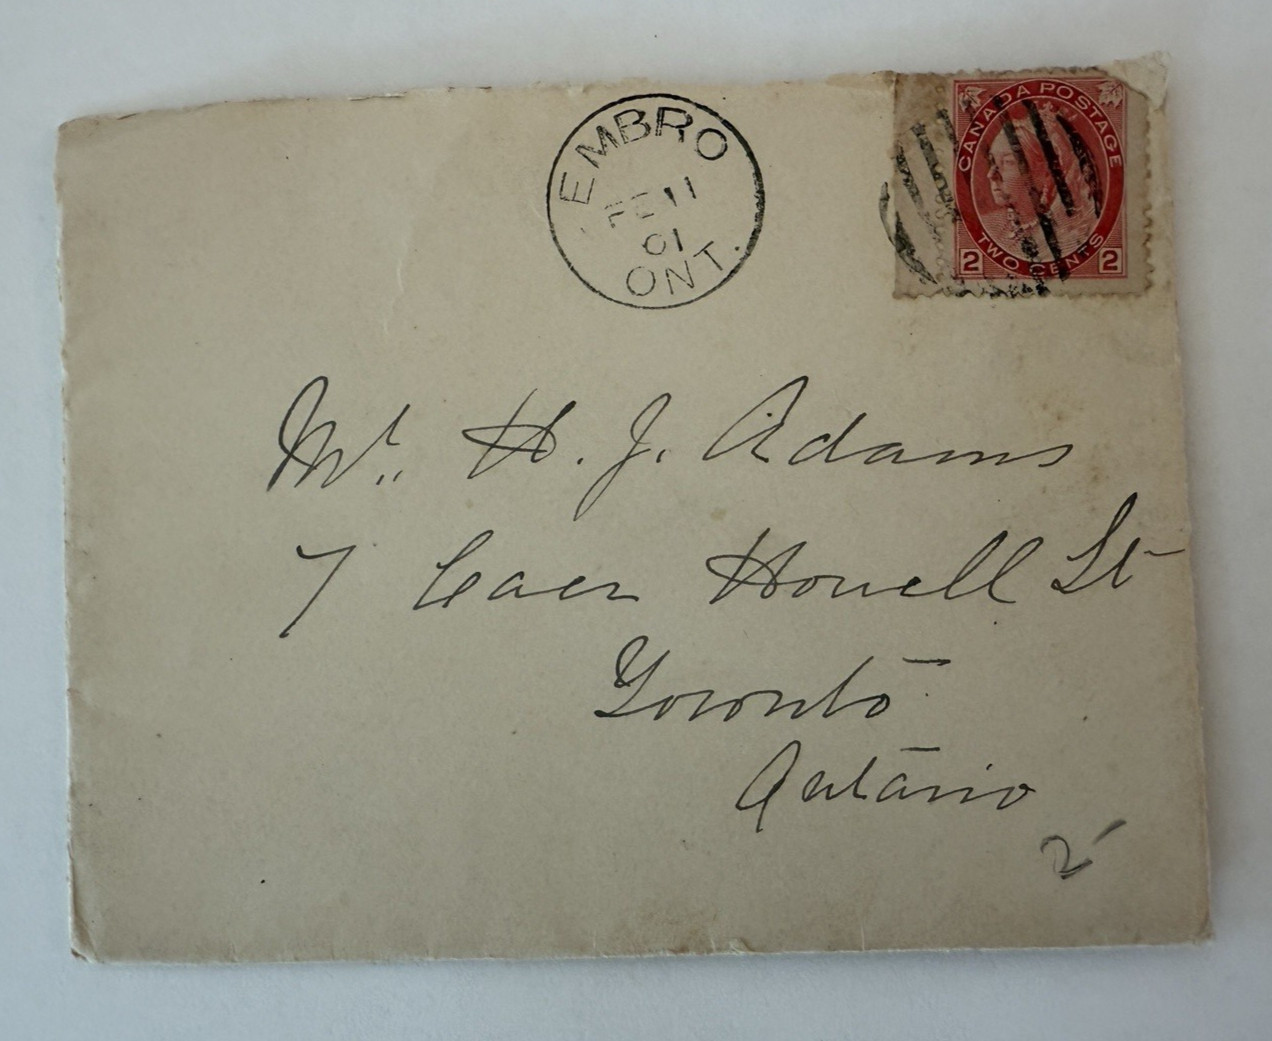 EMBRO
FE 11
01
ONT.
CANADA POSTAGE
TWO CENTS
2 2
Mr. H. J. Adams
7 Caer Howell St
Toronto
Ontario
2